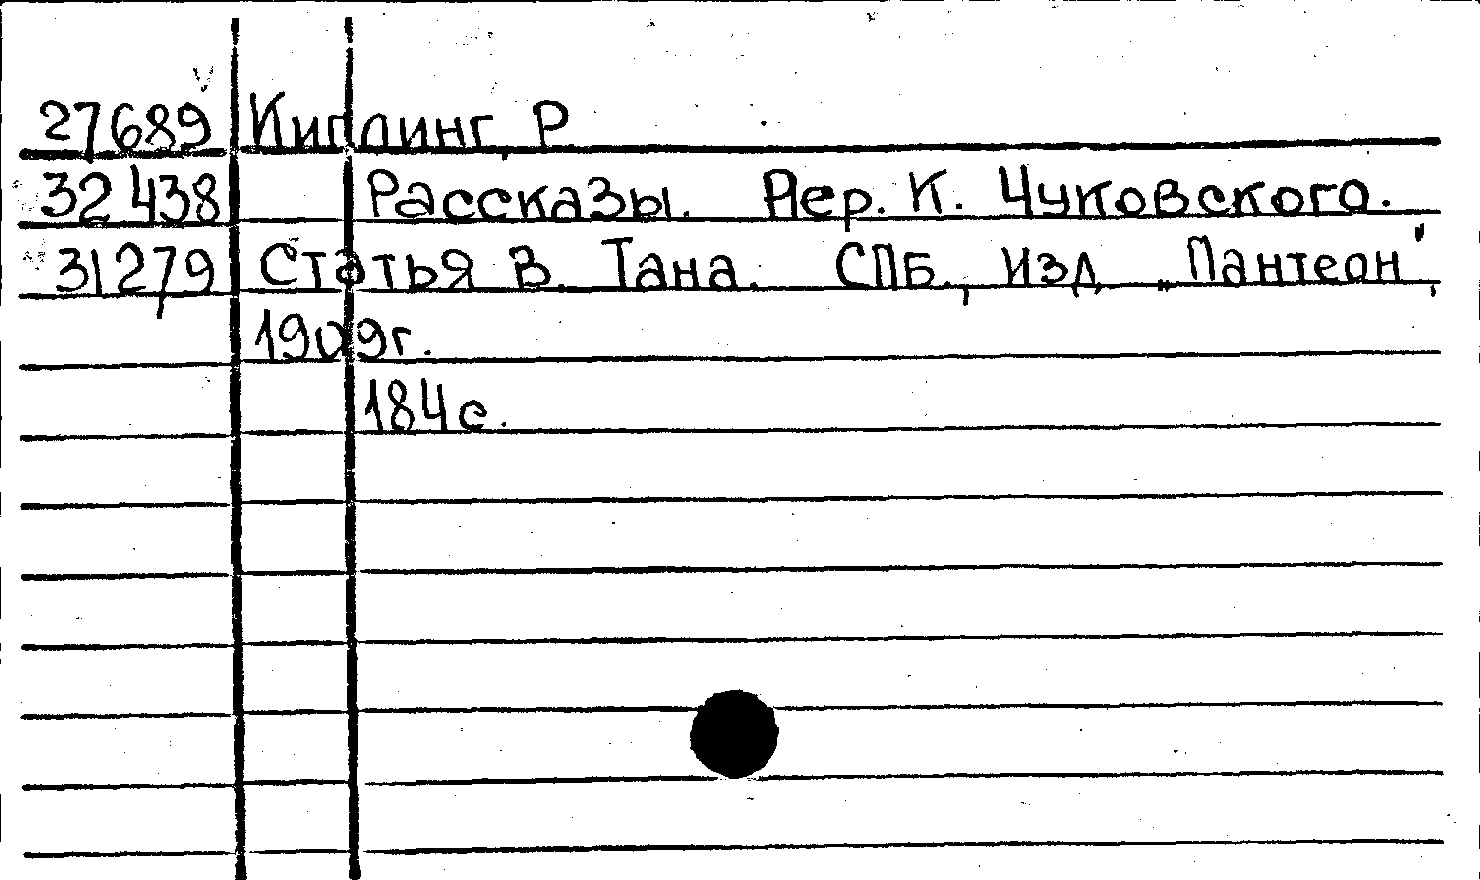 27689 Киплинг, Р.
32438 Рассказы. Пер. К. Чуковского.
31279 Статья В. Тана. СПБ., изд. „Пантеон",
1909г.
184с.